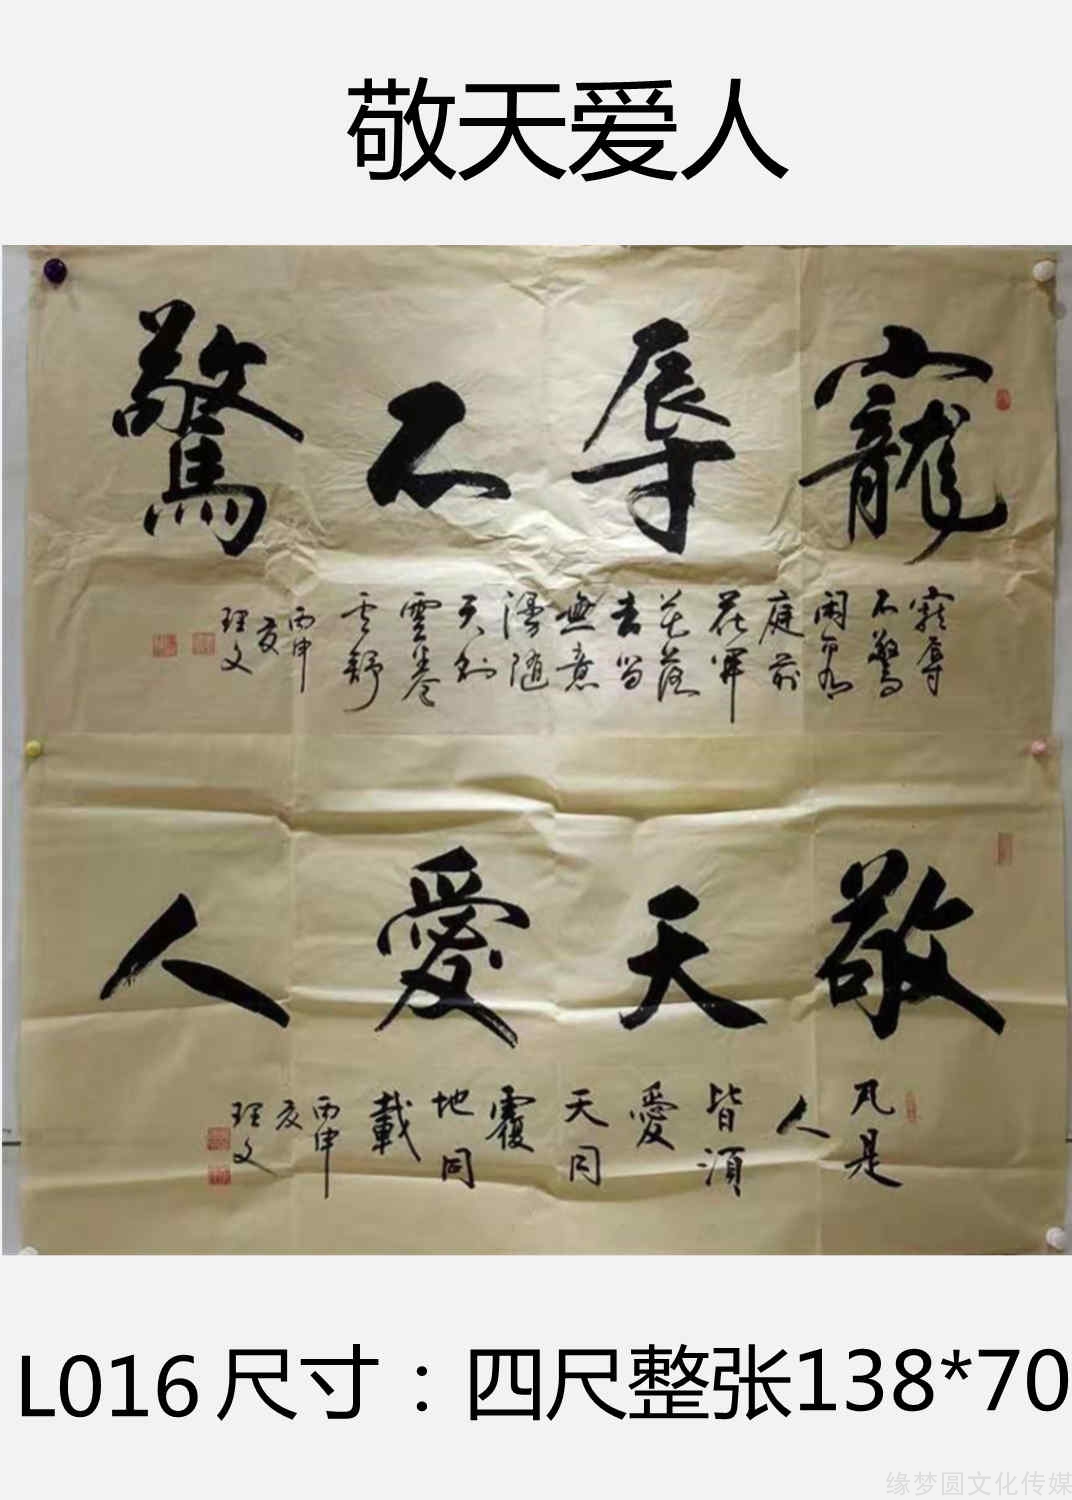 敬天爱人
寵辱不驚
寵辱
不驚
閑看
庭前
花開
花落
去留
無意
漫隨
天外
雲卷
雲舒
丙申
夏
理文
敬天愛人
凡是
人
皆須
愛
天同
覆
地同
載
丙申
夏
理文
L016尺寸：四尺整张138*70
缘梦圆文化传媒